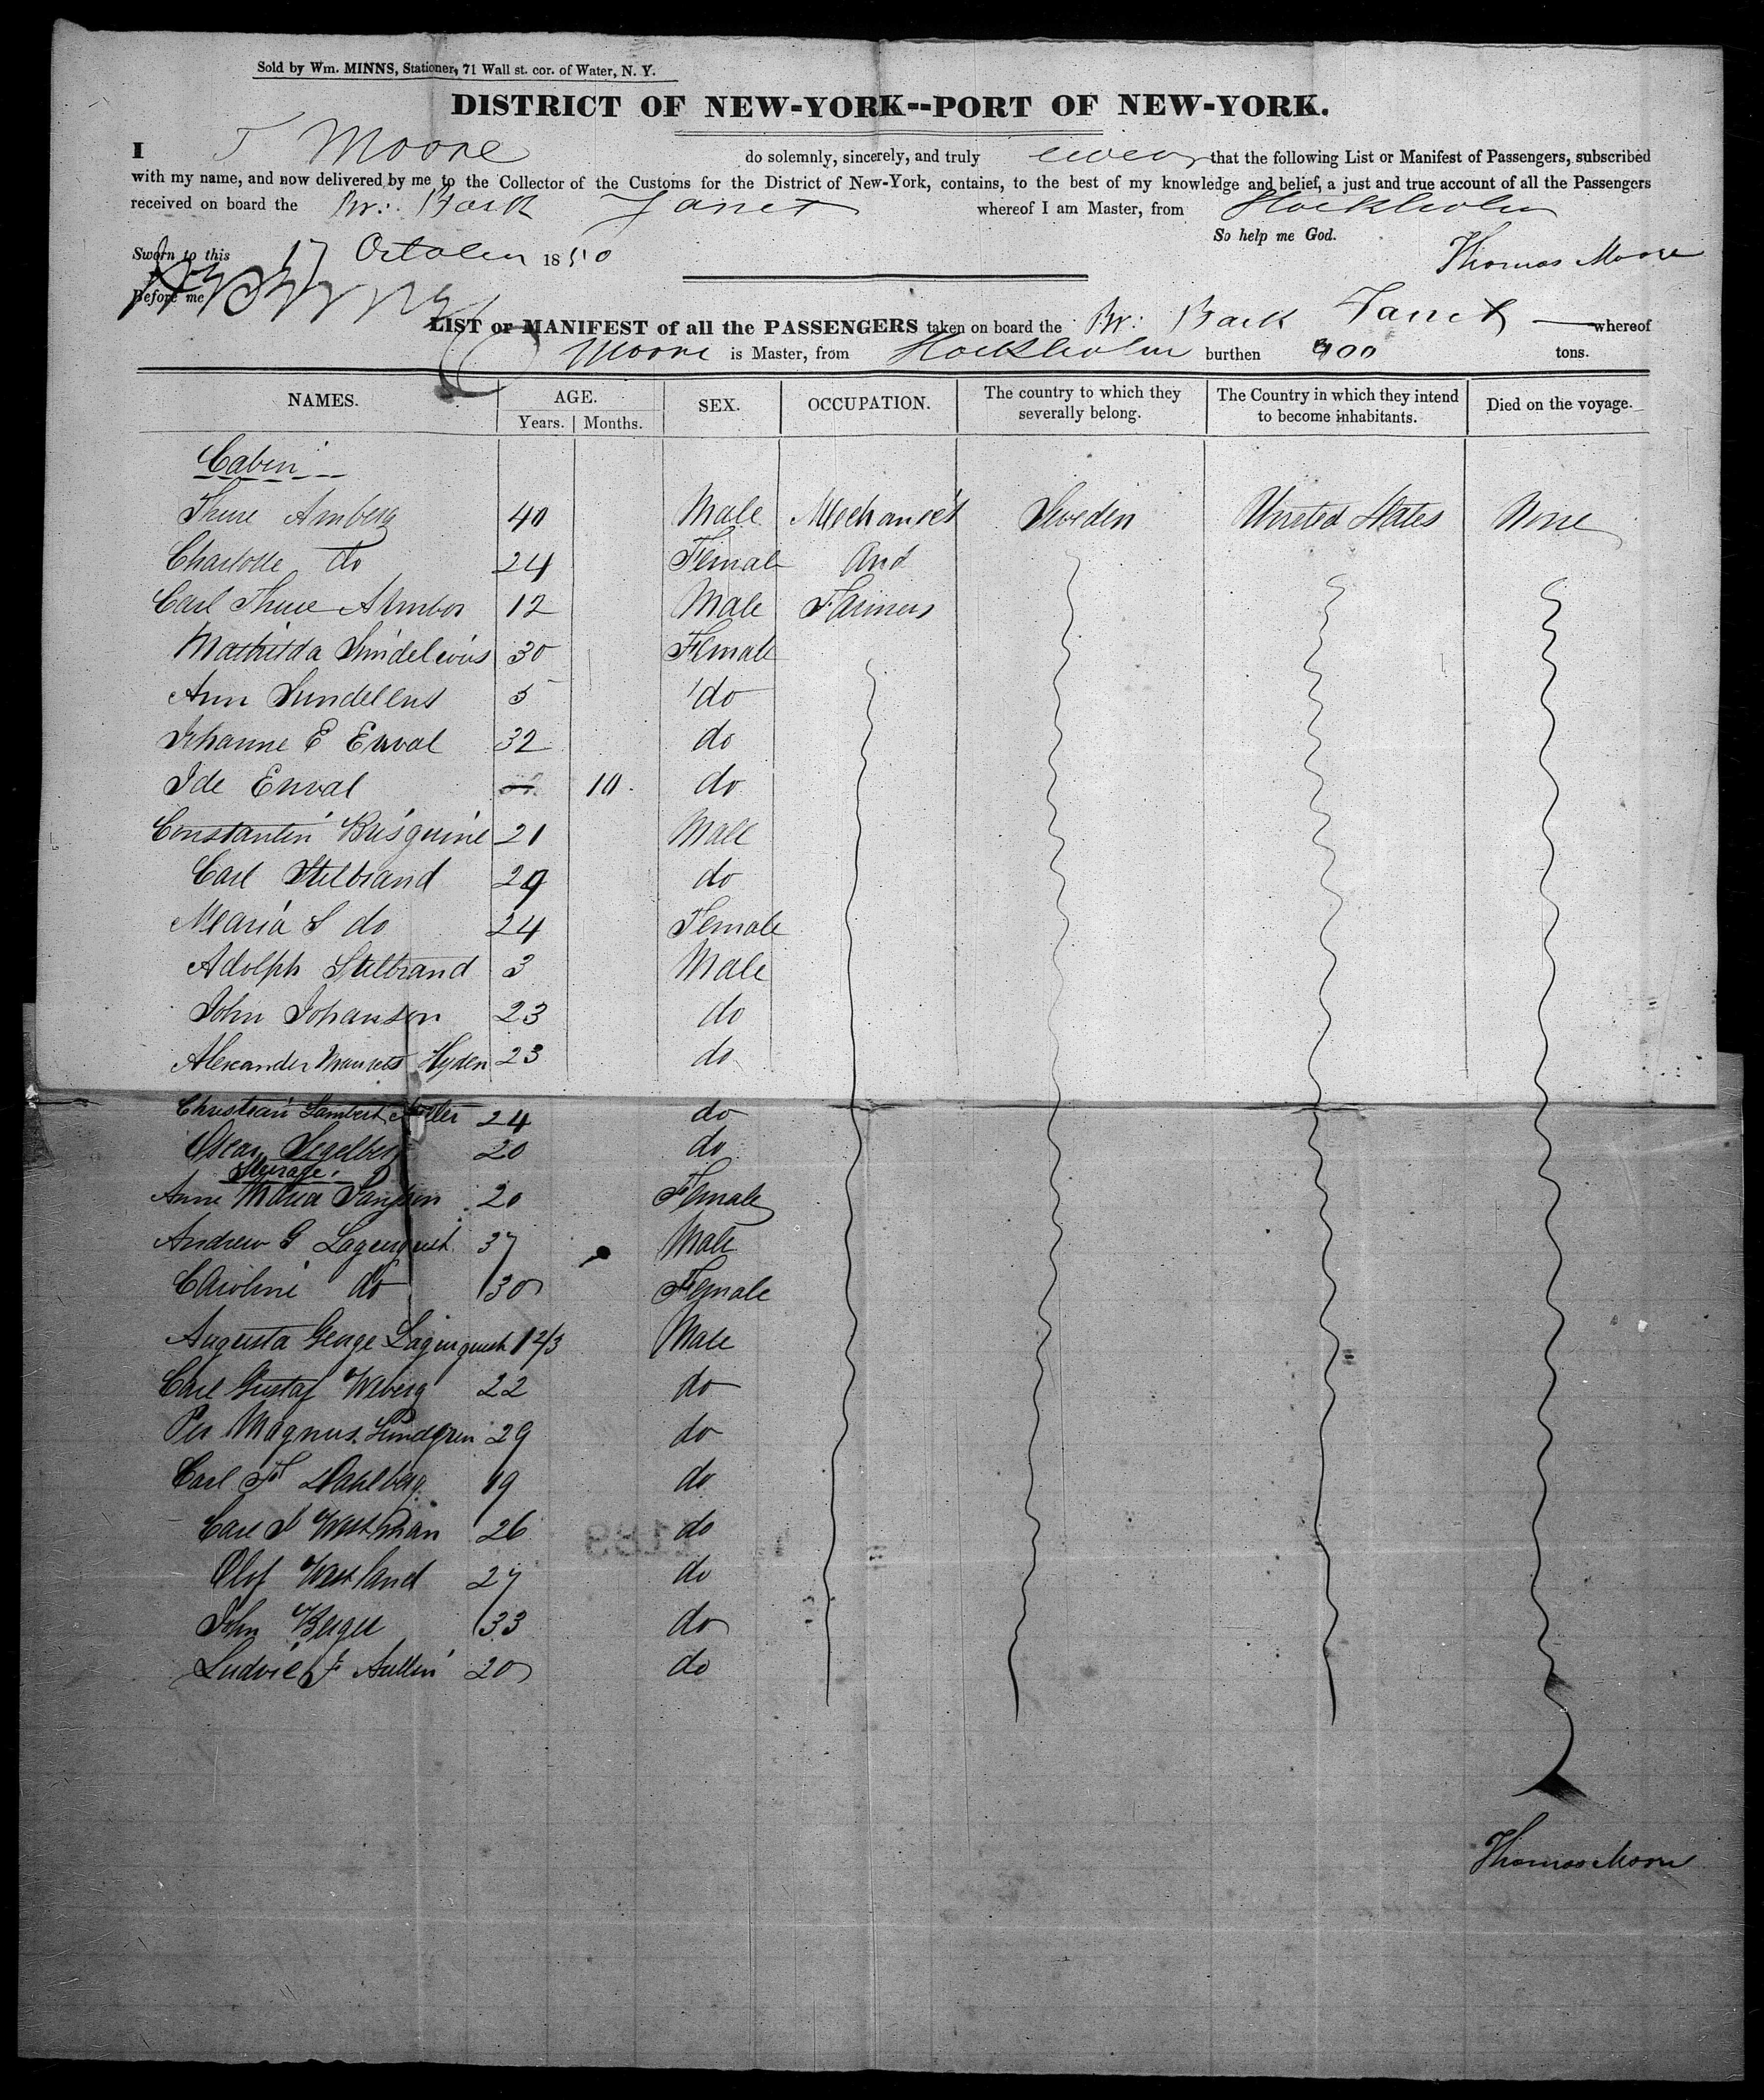 Sold by Wm. MINNS, Stationer, 71 Wall st. cor. of Water, N. Y.
DISTRICT OF NEW-YORK--PORT OF NEW-YORK.
I T Moore do solemnly, sincerely, and truly swear that the following List or Manifest of Passengers, subscribed
with my name, and now delivered by me to the Collector of the Customs for the District of New-York, contains, to the best of my knowledge and belief, a just and true account of all the Passengers
received on board the Br: Bark Janet whereof I am Master, from Stockholm
So help me God.
Sworn to this 17 October 1850
Thomas Moore
Before me
LIST or MANIFEST of all the PASSENGERS taken on board the Br: Bark Janet whereof
Moore is Master, from Stockholm burthen 400 tons.
NAMES. AGE. SEX. OCCUPATION. The country to which they severally belong. The Country in which they intend to become inhabitants. Died on the voyage.
Years. Months.
Cabin
Thure Arnberg 40 Male Mechanics Sweden United States None
Charlotte do 24 Female And
Carl Thure 12 Male Farmers
Mathilda 30 Female
Ann 5 do
Johanne E Enval 32 do
Ide Enval 10 do
Constantin 21 Male
Carl Stelbrand 29 do
Maria S do 24 Female
Adolph Stelbrand 3 Male
John Johanson 23 do
Alexander Hyden 23 do
Christian Lambert 24 do
Oscar Segelberg 20 do
Steerage
Anne Maria 20 Female
Andrew G Lagerquist 37 Male
Caroline do 30 Female
Augusta George Lagerquist 1 2/3 Male
Carl Gustaf Wiberg 22 do
Per Magnus Lundgren 29 do
Carl F Dahlberg 19 do
Carl J Westman 26 do
Olof Westland 27 do
John Berger 33 do
Ludvic F 20 do
Thomas Moore